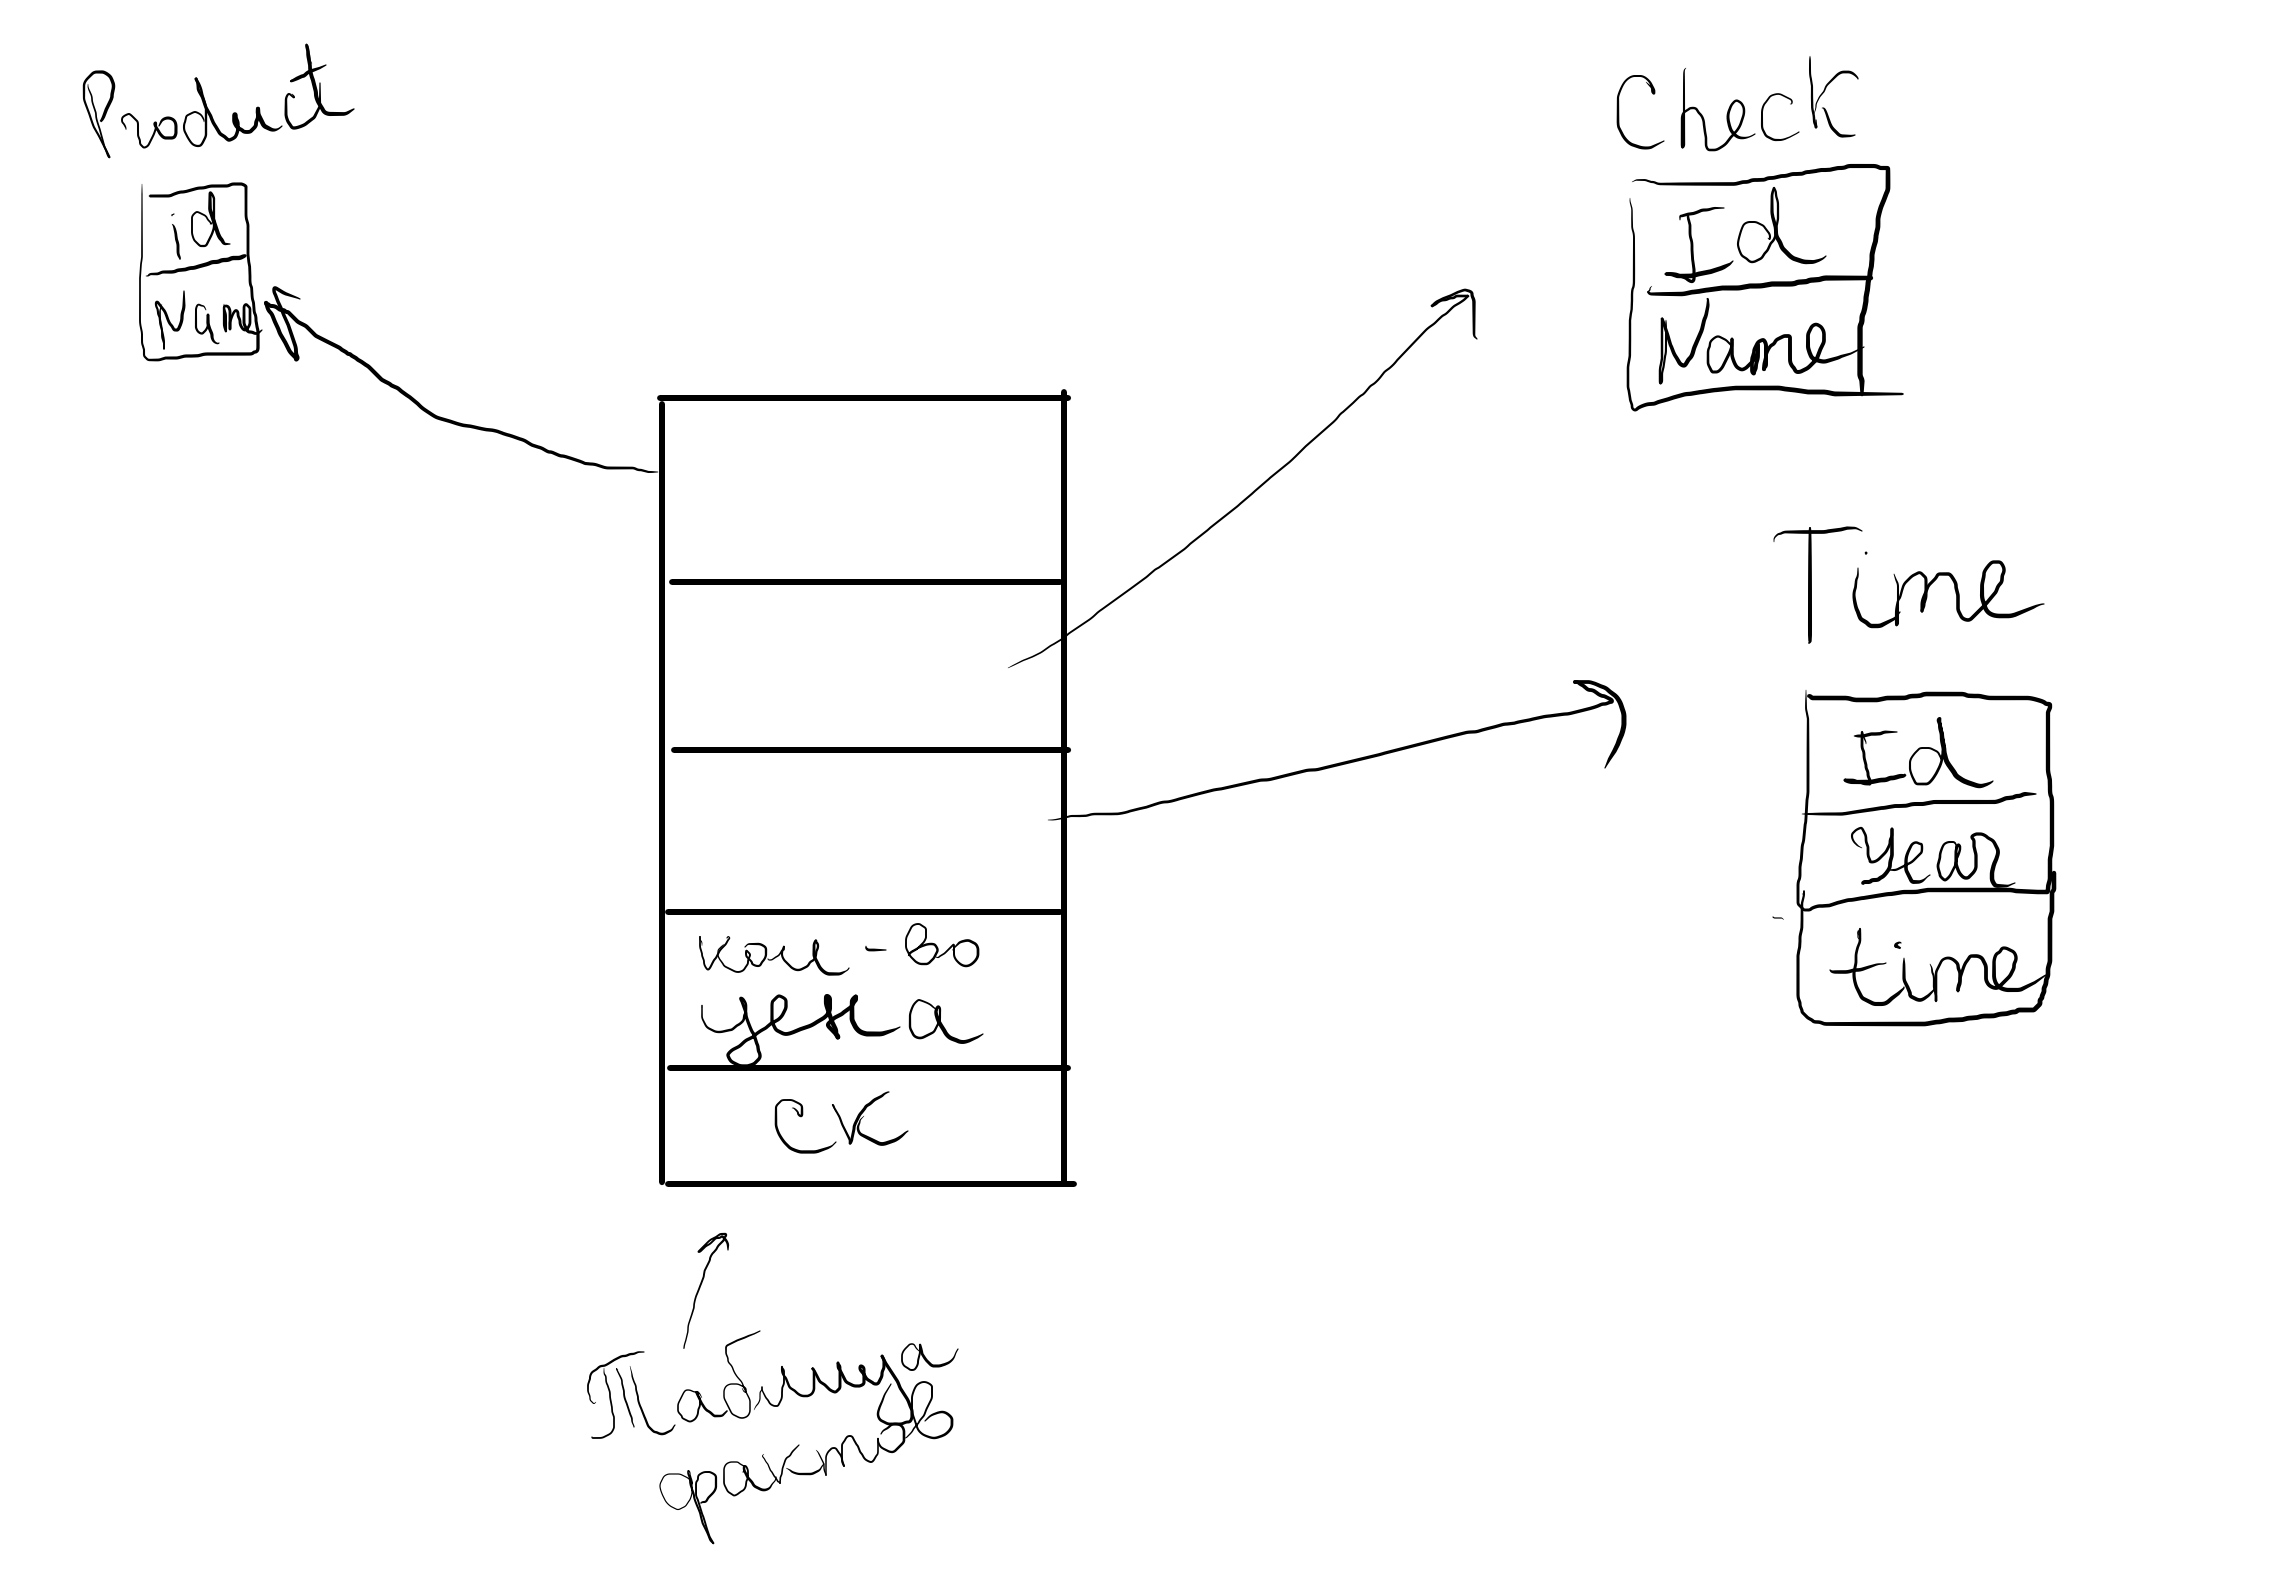 Product
id
Name
Check
Id
Name
Time
Id
Year
time
кол-во
цена
СК
Таблица
фактов